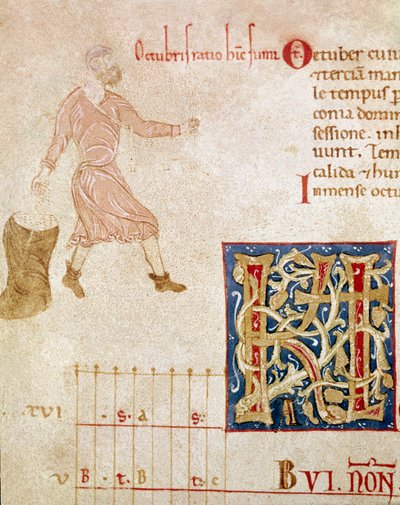 Octubris ratio hic sumit
October cum
& tercia man
le tempus p
conia domin
sessione. inh
uunt. Tem
calida & hum
Inmense octu
KL
XVI · S. a s:
V B · t. B · t. c
B VI. NON